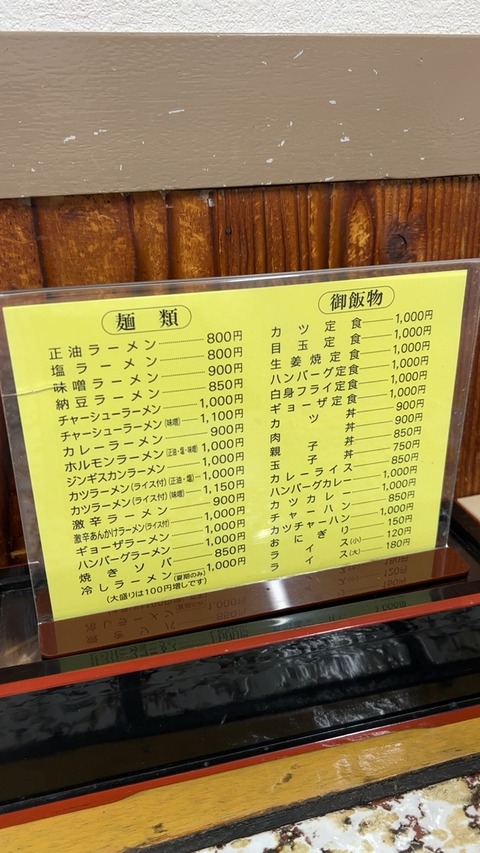 麺類
正油ラーメン 800円
塩ラーメン 800円
味噌ラーメン 900円
納豆ラーメン 850円
チャーシューラーメン 1,000円
チャーシューラーメン(味噌) 1,100円
カレーラーメン 900円
ホルモンラーメン(正油・塩・味噌) 1,000円
ジンギスカンラーメン 1,000円
カツラーメン(ライス付)(正油・塩) 1,000円
カツラーメン(ライス付)(味噌) 1,150円
激辛ラーメン 900円
激辛あんかけラーメン(ライス付) 1,000円
ギョーザラーメン 1,000円
ハンバーグラーメン 1,000円
焼きソバ 850円
冷しラーメン(夏期のみ) 1,000円
(大盛りは100円増しです)
御飯物
カツ定食 1,000円
目玉定食 1,000円
生姜焼定食 1,000円
ハンバーグ定食 1,000円
白身フライ定食 1,000円
ギョーザ定食 1,000円
カツ丼 900円
肉丼 900円
親子丼 850円
玉子丼 750円
カレーライス 850円
ハンバーグカレー 1,000円
カツカレー 1,000円
チャーハン 850円
カツチャーハン 1,000円
おにぎり 150円
ライス(小) 120円
ライス(大) 180円